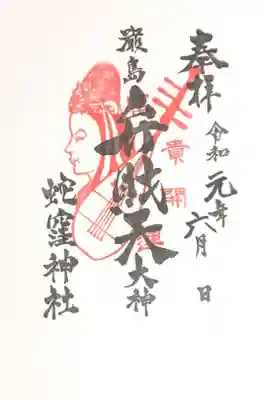 奉拝
令和元年六月 日
貴開運
嚴島
弁財天大神
蛇窪神社